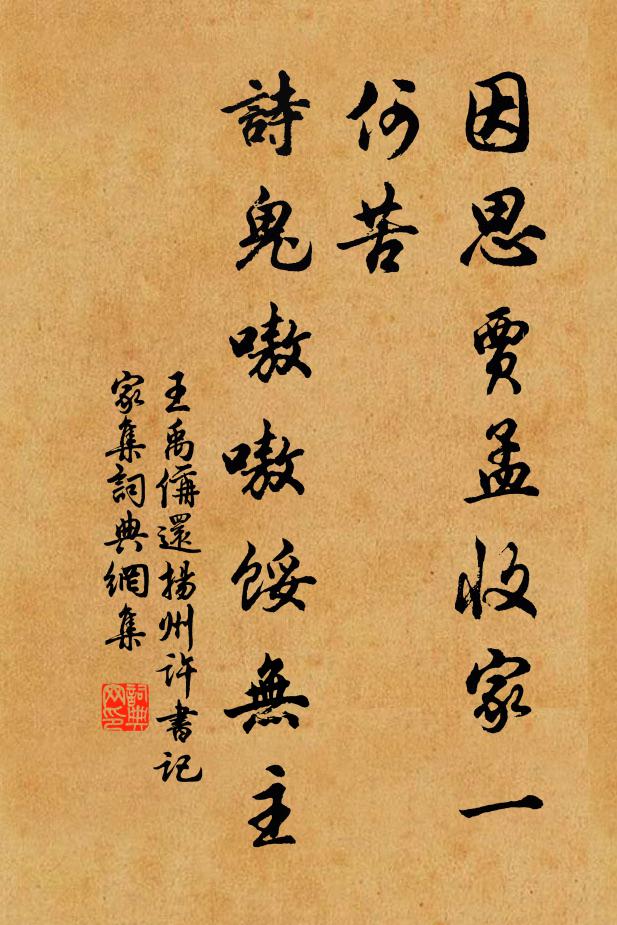 因思賈孟收家一
何苦
詩鬼嗷嗷餒無主
王禹偁還揚州許書記
家集詞典網集
詞典
网印